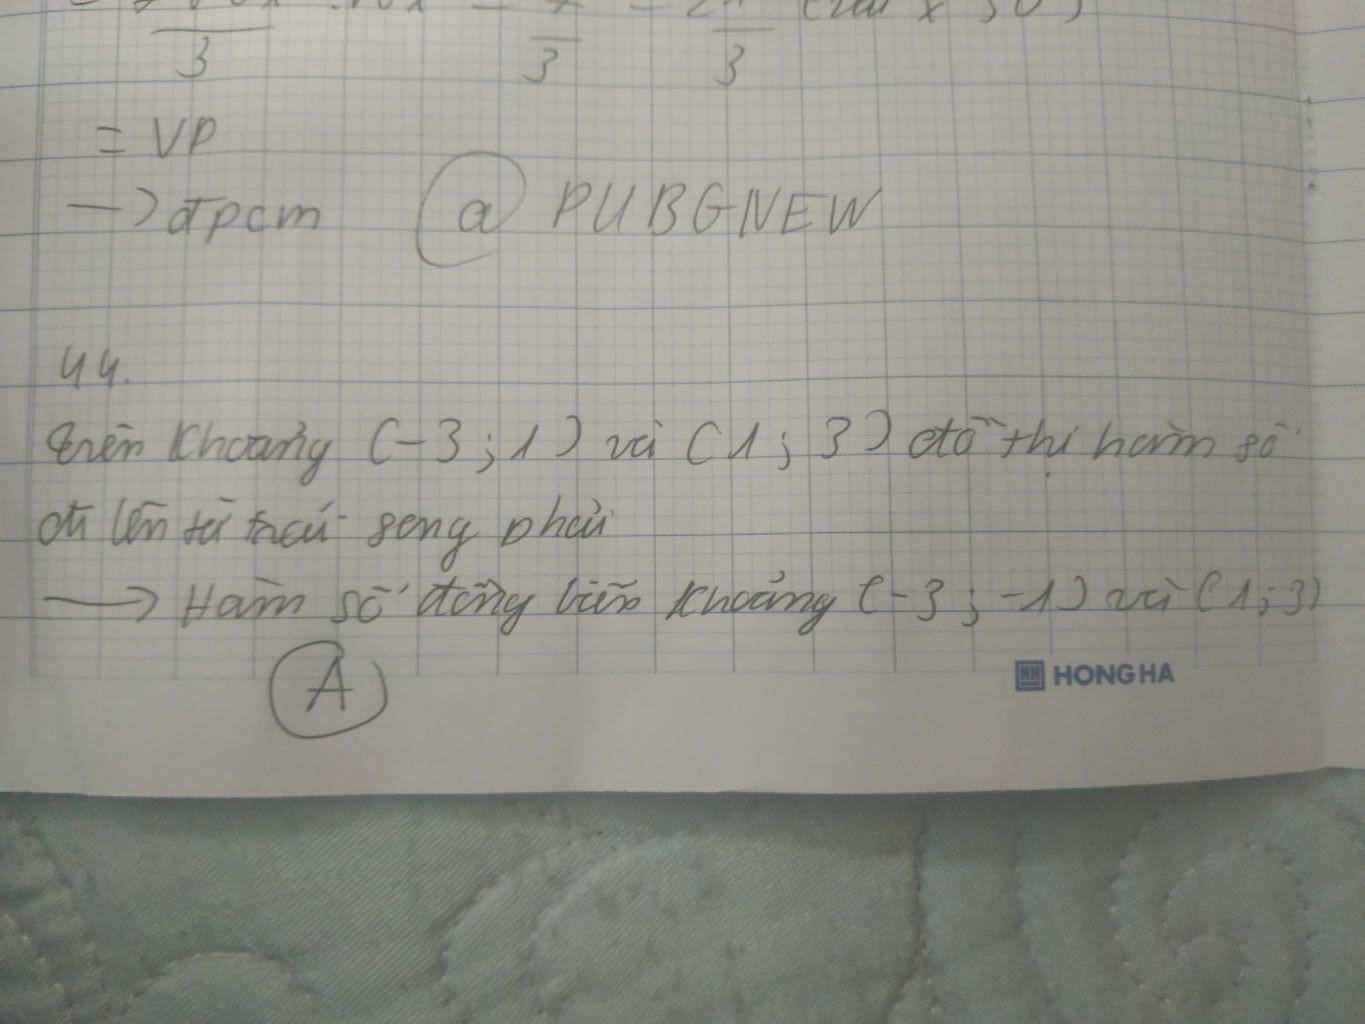 3 3 3
= VP
→ đpcm @ PUBGNEW
44.
trên khoảng (-3; 1) và (1; 3) đồ thị hàm số
đi lên từ trái sang phải
→ Hàm số đồng biến khoảng (-3; -1) và (1; 3)
A
HONG HA